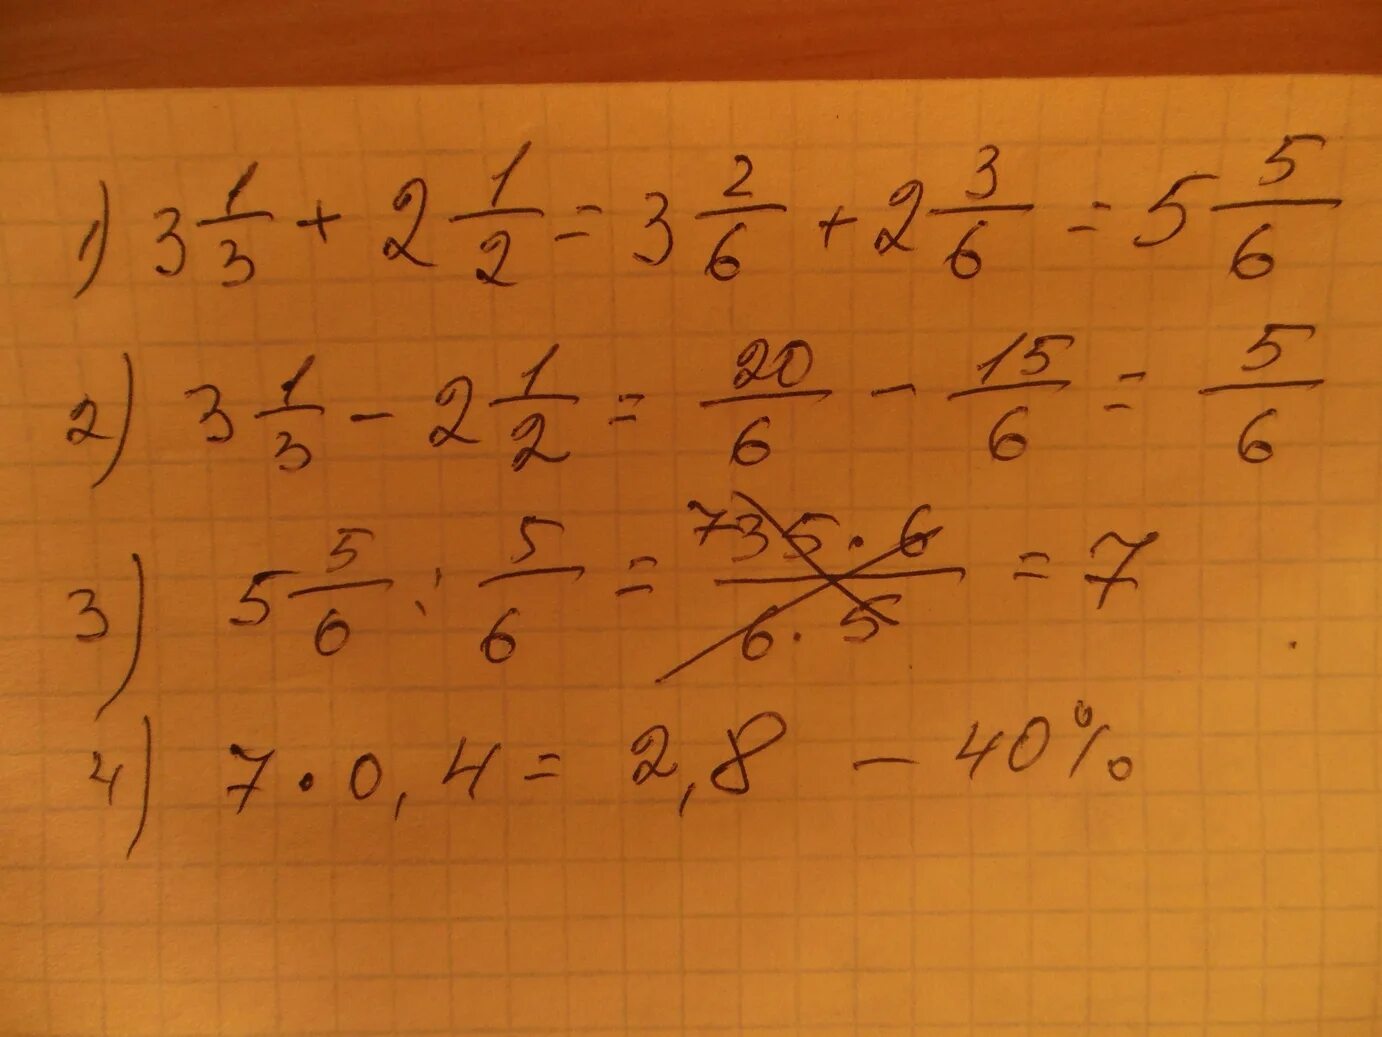 1) 3 1/3 + 2 1/2 = 3 2/6 + 2 3/6 = 5 5/6
2) 3 1/3 - 2 1/2 = 20/6 - 15/6 = 5/6
3) 5 5/6 : 5/6 = 7 35·6/6·5 = 7
4) 7·0,4 = 2,8 - 40%